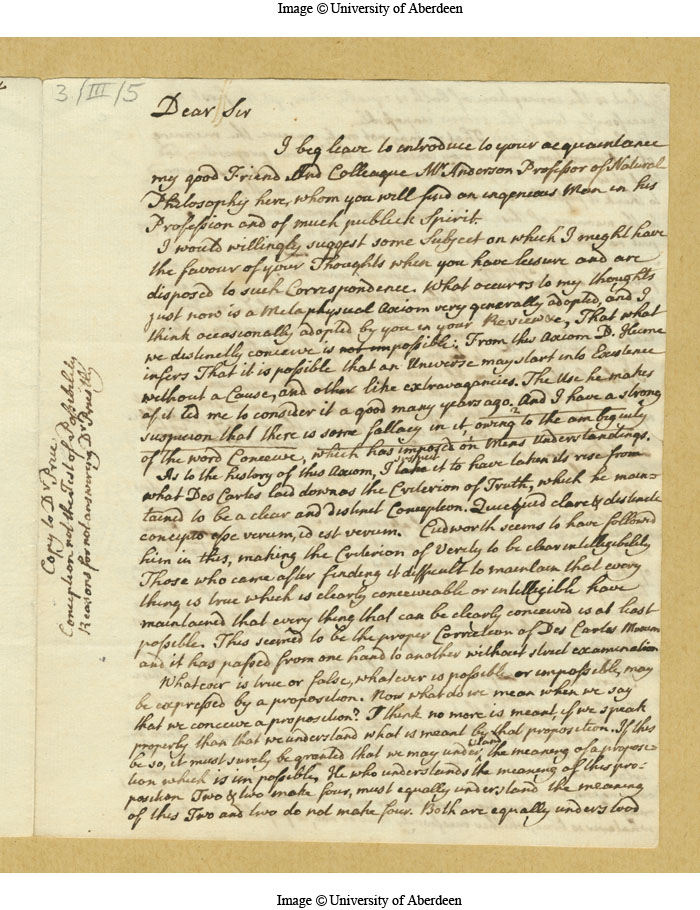 Image © University of Aberdeen
3/III/5
Dear Sir
I beg leave to introduce to your acquaintance
my good Friend And Colleague Mr Anderson Professor of Natural
Philosophy here, whom you will find an ingenious Man in his
Profession and of much publick Spirit.
I would willingly suggest some Subject on which I might have
the favour of your Thoughts when you have leisure and are
disposed to such Correspondence. What occurrs to my thoughts
just now is a Metaphysical Axiom very generally adopted, and I
think occasionally adopted by you in your Review, That what
we distinctly conceive is not impossible: From this Axiom D. Hume
infers That it is possible that an Universe may start into Existence
without a Cause, and other like extravagancies. The Use he makes
of it led me to consider it a good many years ago. And I have a strong
suspicion that there is some fallacy in it owing to the ambiguity
of the word Conceive, which has imposed on Mens Understandings.
As to the history of this Axiom, I take it to have taken its rise from
what Des Cartes laid down as the Criterion of Truth, which he main-
tained to be a clear and distinct Conception. Quicquid clare & distincte
concipio esse verum, id est verum. Cudworth seems to have followed
him in this, making the Criterion of Verity to be clear intelligibility
Those who came after finding it difficult to maintain that every
thing is true which is clearly conceiveable or intelligible have
maintained that every thing that can be clearly conceived is at least
possible. This seemed to be the proper Correction of Des Cartes Maxim
and it has passed from one hand to another without strict examination
Whatever is true or false, whatever is possible or impossible, may
be expressed by a proposition. Now what do we mean when we say
that we conceive a proposition? I think no more is meant, if we speak
properly than that we understand what is meant by that proposition. If this
be so, it must surely be granted that we may understand the meaning of a proposi-
tion which is impossible, He who understands the meaning of this pro-
position Two & two make four, must equally understand the meaning
of this Two and two do not make four. Both are equally understood
Copy to Dr Price
Conception not the Test of Possibility
Reasons for not answering Dr Priestly
Image © University of Aberdeen